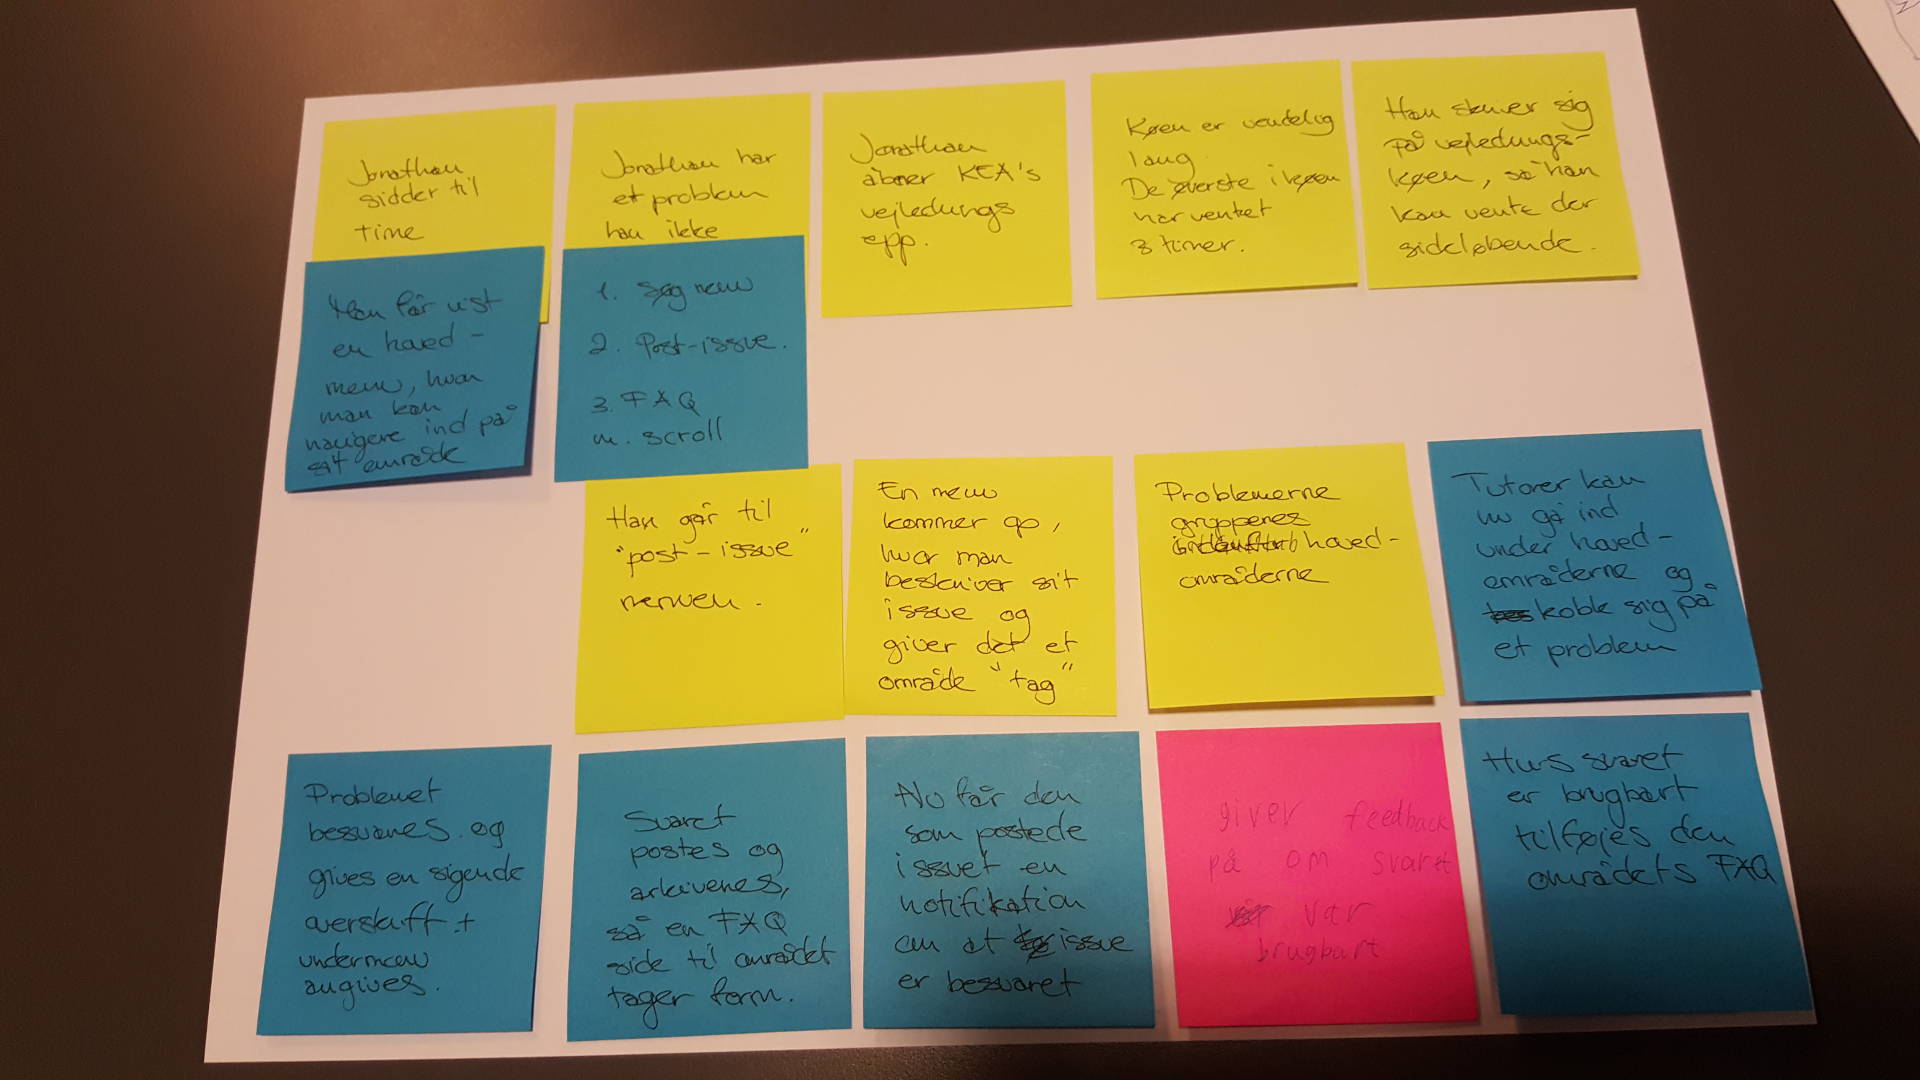 Jonathan
sidder til
time
Jonathan har
et problem
han ikke
Jonathan
åbner KEA's
vejlednings
app.
Køen er uendelig
lang
De øverste i køen
har ventet
3 timer.
Han skriver sig
på vejlednings-
køen, så han
kan vente der
sideløbende.
Man får vist
en hoved-
menu, hvor
man kan
navigere ind på
sit område
1. Søg menu
2. Post-issue.
3. FAQ
m. scroll
Han går til
"post-issue"
menuen.
En menu
kommer op,
hvor man
beskriver sit
issue og
giver det et
område "tag"
Problemerne
grupperes
hoved-
områderne
Tutorer kan
nu gå ind
under hoved-
områderne og
koble sig på
et problem
Problemet
besvares og
gives en sigende
overskrift +
undermenu
angives.
Svaret
postes og
arkiveres,
så en FAQ
side til området
tager form.
Nu får den
som postede
issuet en
notifikation
om at issue
er besvaret
giver feedback
på om svaret
var
brugbart
Hvis svaret
er brugbart
tilføjes den
områdets FAQ